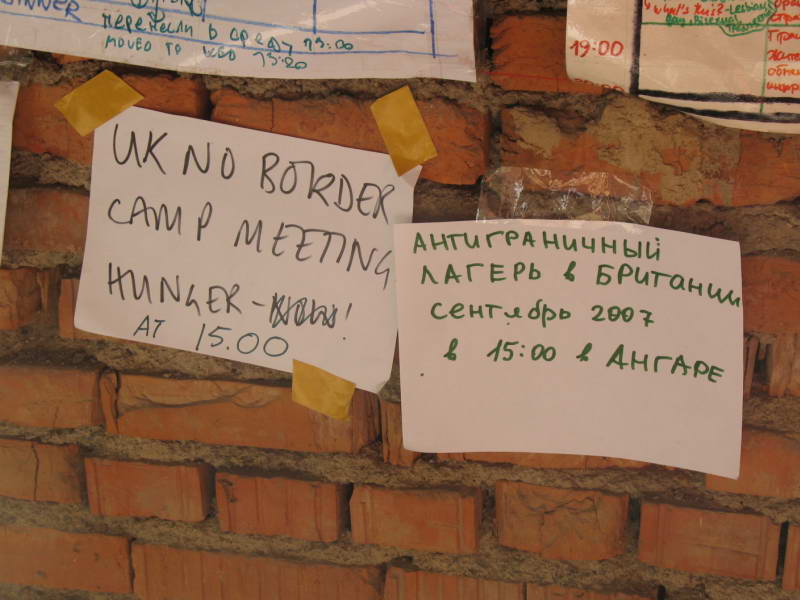 DINNER
перенесли в среду 13:00
MOVED TO WED 13:00
19:00
UK NO BORDER
CAMP MEETING
HUNGER -
AT 15.00
АНТИГРАНИЧНЫЙ
ЛАГЕРЬ в БРИТАНИИ
сентябрь 2007
в 15:00 в АНГАРЕ